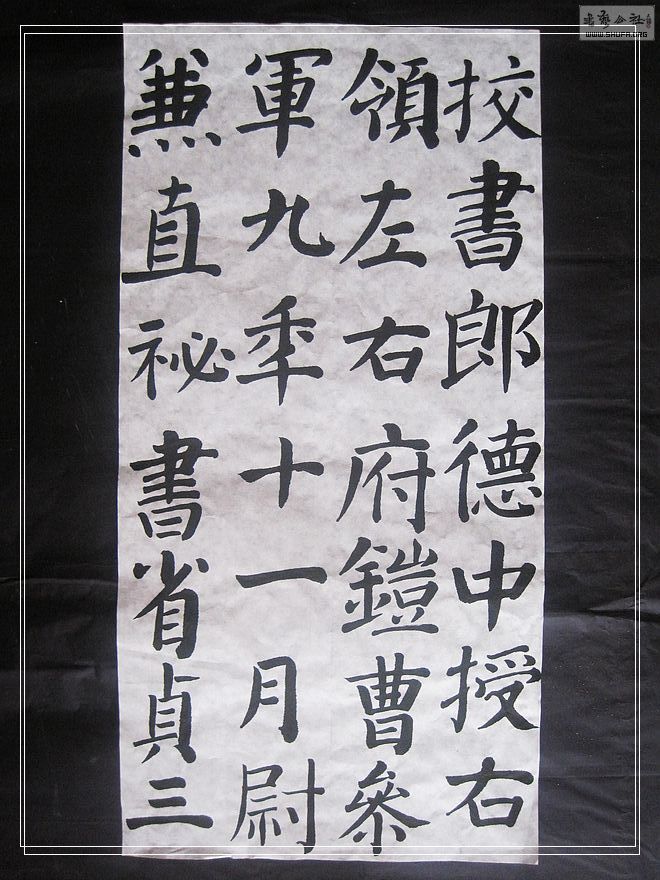 挍書郎德中授右
領左右府鎧曹參
軍九年十一月尉
兼直祕書省貞三
書藝公社
WWW.SHUFA.ORG